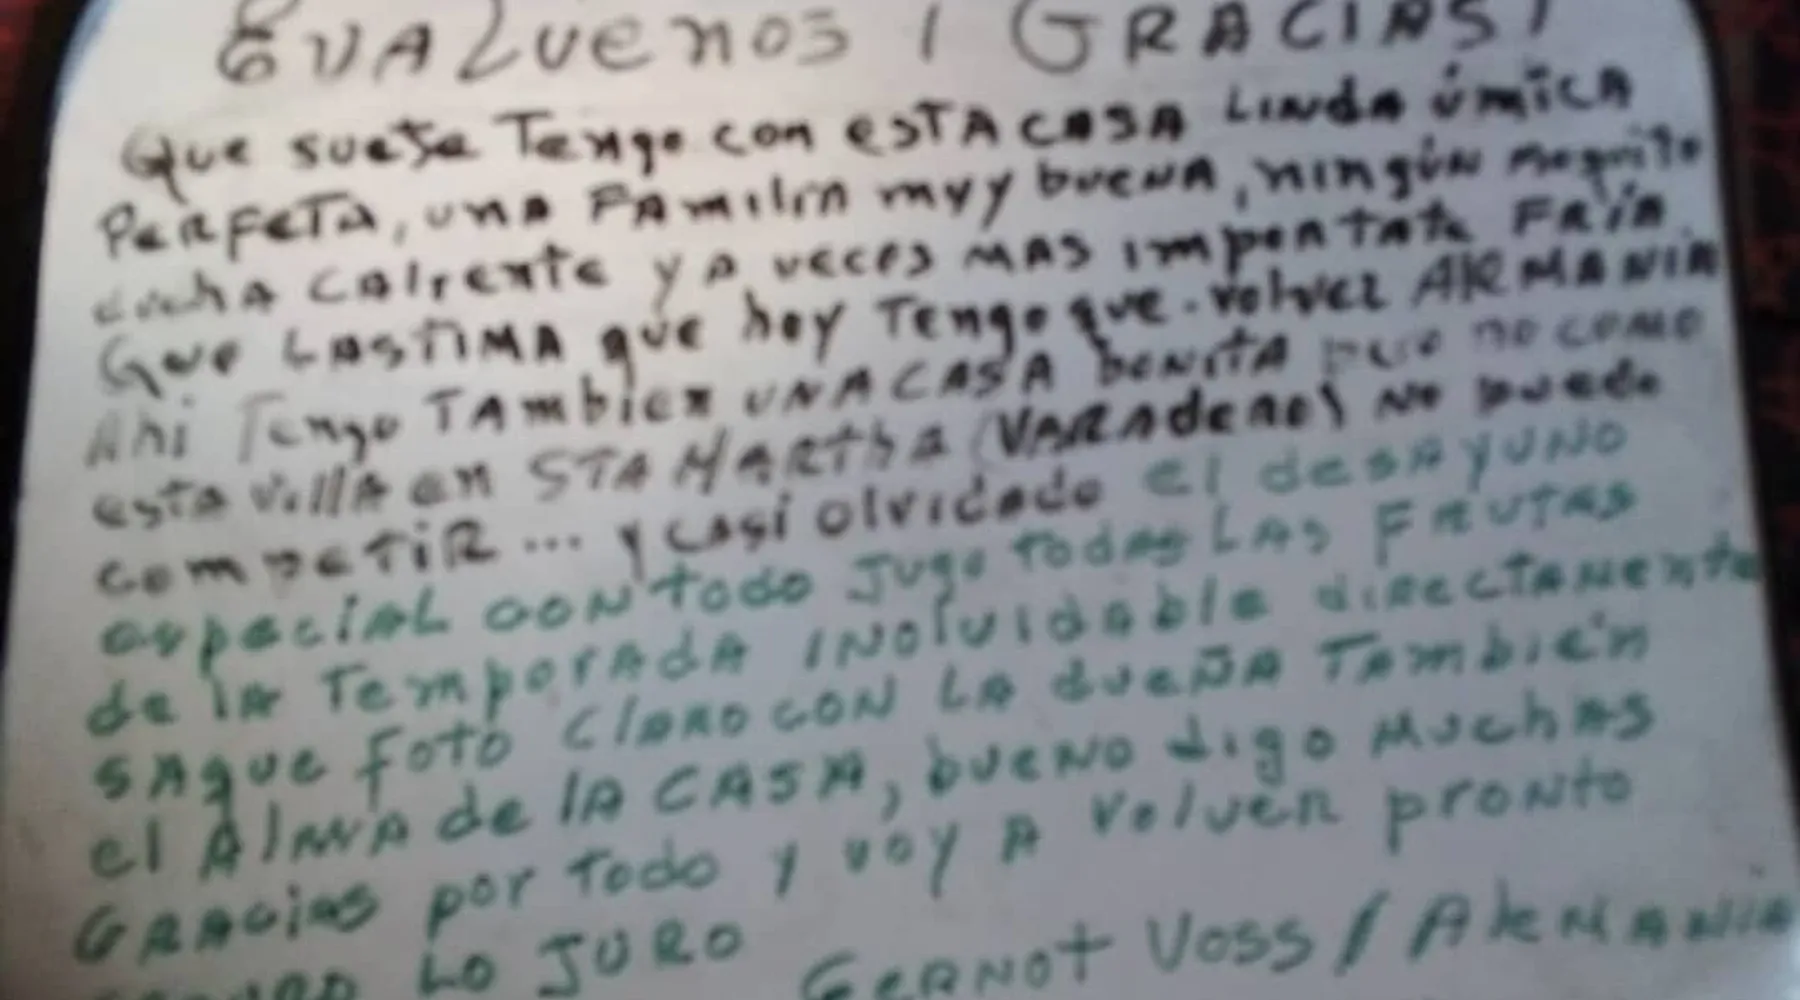 EVALuenos ¡ GRACIAS!
Que suerte Tengo con ESTA CASA LINdA única
PERFETA, UNA FAMILIA muy buena, ningún moquito
ducha caliente y a veces MAS importate FRÍA
Que LASTIMA que hoy Tengo que volver ALEMANIA
Ahi Tengo TAmbien UNA CASA bonita pero no como
esta villa en STA MARThA (VARAdeRO) NO puede
compETIR ... y casi olvidado el desAyUNO
especiAL CON todo Jugo todas LAS FRUTAS
de la TemporAdA INOlvidable diRectAMente
SAque foto clARO CON LA dueÑA TAmbién
el AlMA de la CASA, bueNO digo MUchAS
GRAciAS por Todo y voy A volveR proNto
LO JURO
GERNOT VOSS / AleMANIA